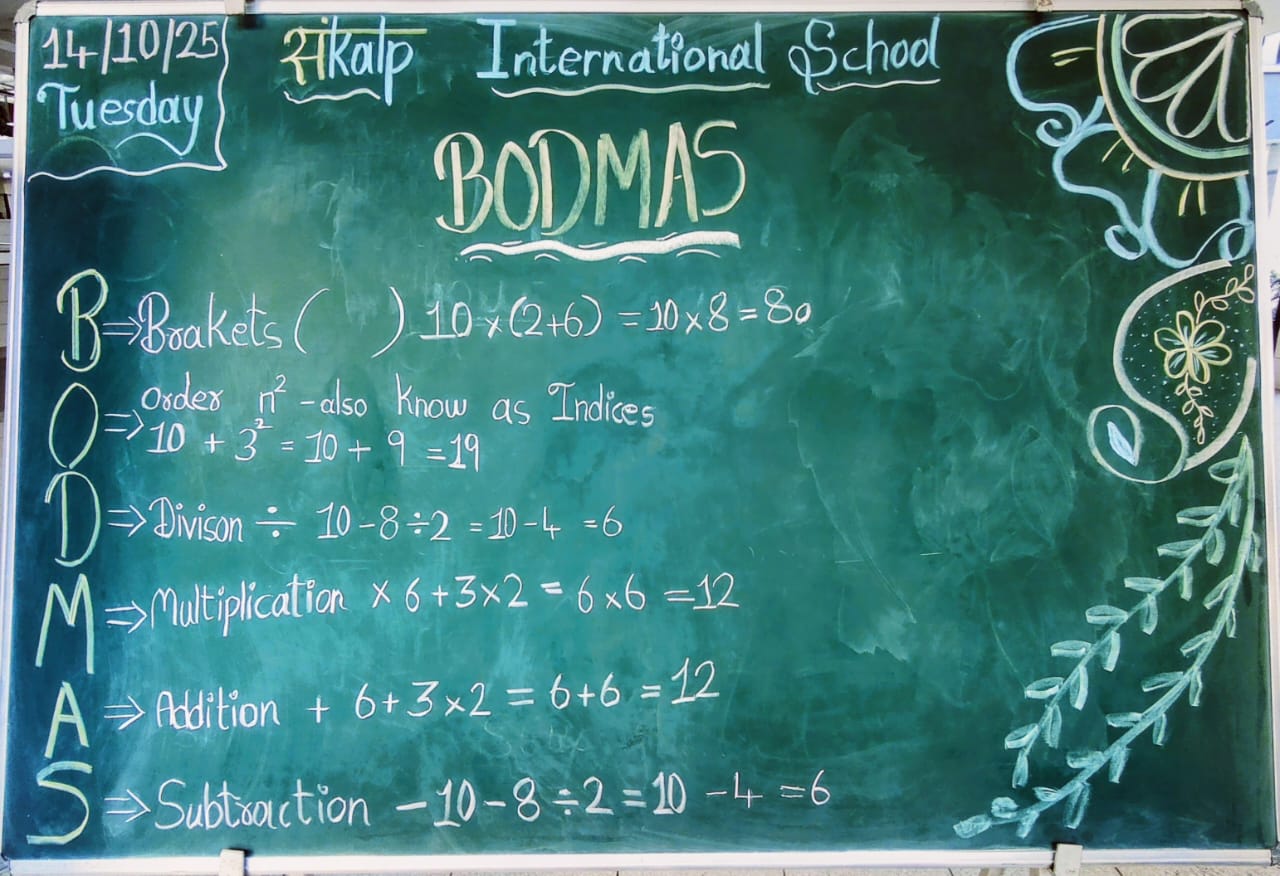 14/10/25
Tuesday
संkalp International School
BODMAS
B ⇒ Brakets ( ) 10 × (2+6) = 10 × 8 = 80
O ⇒ order n² - also know as Indices
10 + 3² = 10 + 9 = 19
D ⇒ Divison ÷ 10 - 8 ÷ 2 = 10 - 4 = 6
M ⇒ Multiplication × 6 + 3 × 2 = 6 × 6 = 12
A ⇒ Addition + 6 + 3 × 2 = 6 + 6 = 12
S ⇒ Subtraction - 10 - 8 ÷ 2 = 10 - 4 = 6